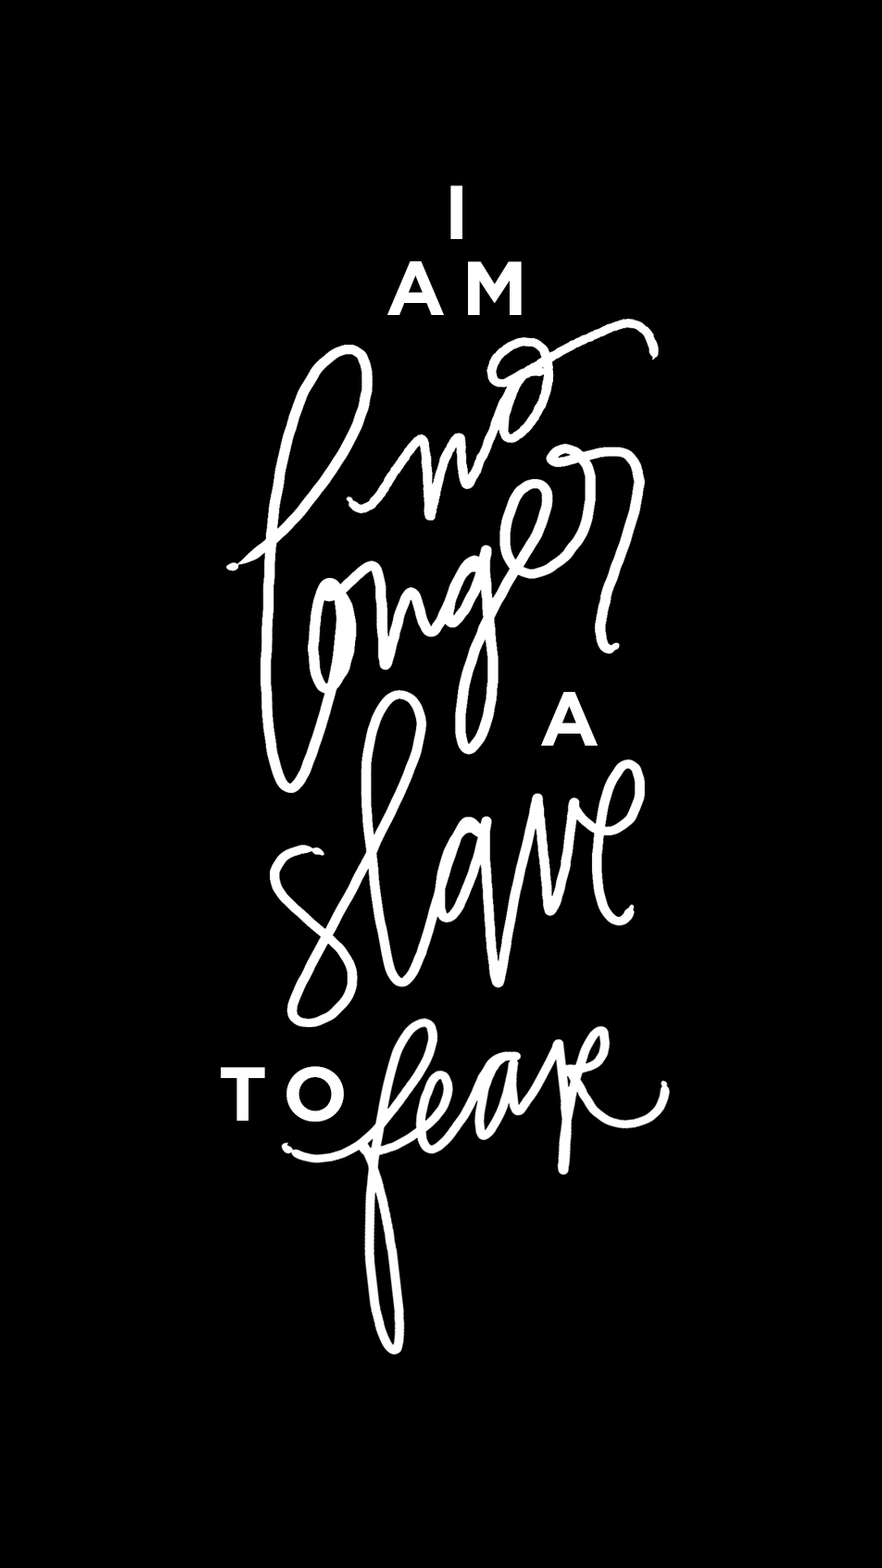 I
AM
no
longer
A
slave
TO fear